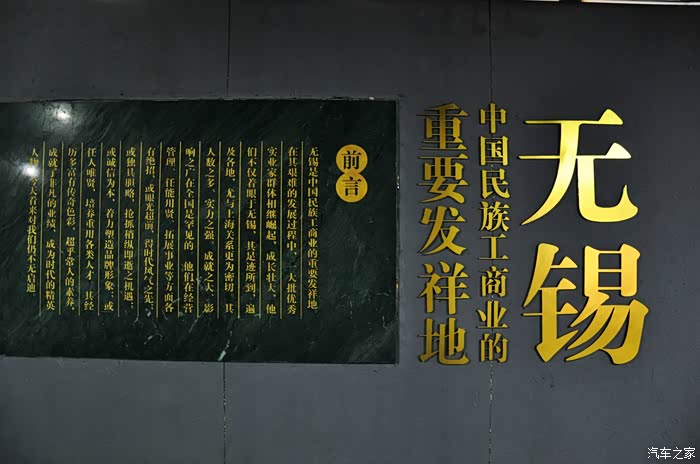 无锡
中国民族工商业的
重要发祥地
前言
无锡是中国民族工商业的重要发祥地
在其艰难的发展过程中，一大批优秀
实业家群体相继崛起，成长壮大，他
们不仅着眼于无锡，其足迹所到，遍
及各地，尤与上海关系更为密切，其
人数之多，实力之强，成就之大，影
响之广在全国是罕见的，他们在经营
管理、任能用贤、拓展事业等方面各
有绝招，或眼光超前，得时代风气之先，
或独具胆略，抢抓稍纵即逝之机遇，
或诚信为本，着力塑造品牌形象，或
任人唯贤，培养重用各类人才，其经
历多富有传奇色彩，超乎常人的素养，
成就了非凡的业绩，成为时代的精英
人物，今天看来对我们仍不无启迪。
汽车之家